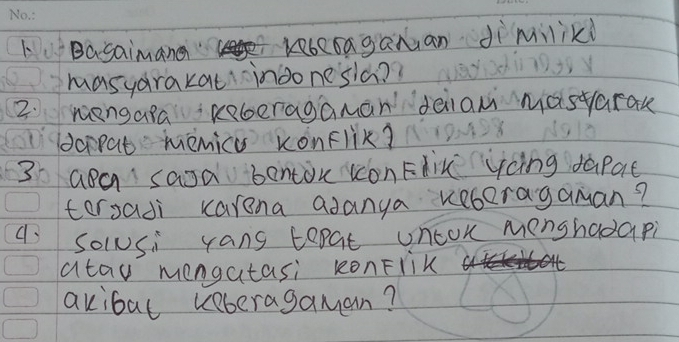 No.:
1. Bagaimana keberagaman dimiliki
masyarakat indonesia?
2. mengapa keberagaman dalam masyarak
dapat memicu konflik?
3 apa saja bentuk konflik yang dapat
terjadi karena adanya keberagaman?
4. solusi yang tepat untuk menghadapi
atau mengatasi konflik akibat
akibat keberagaman?